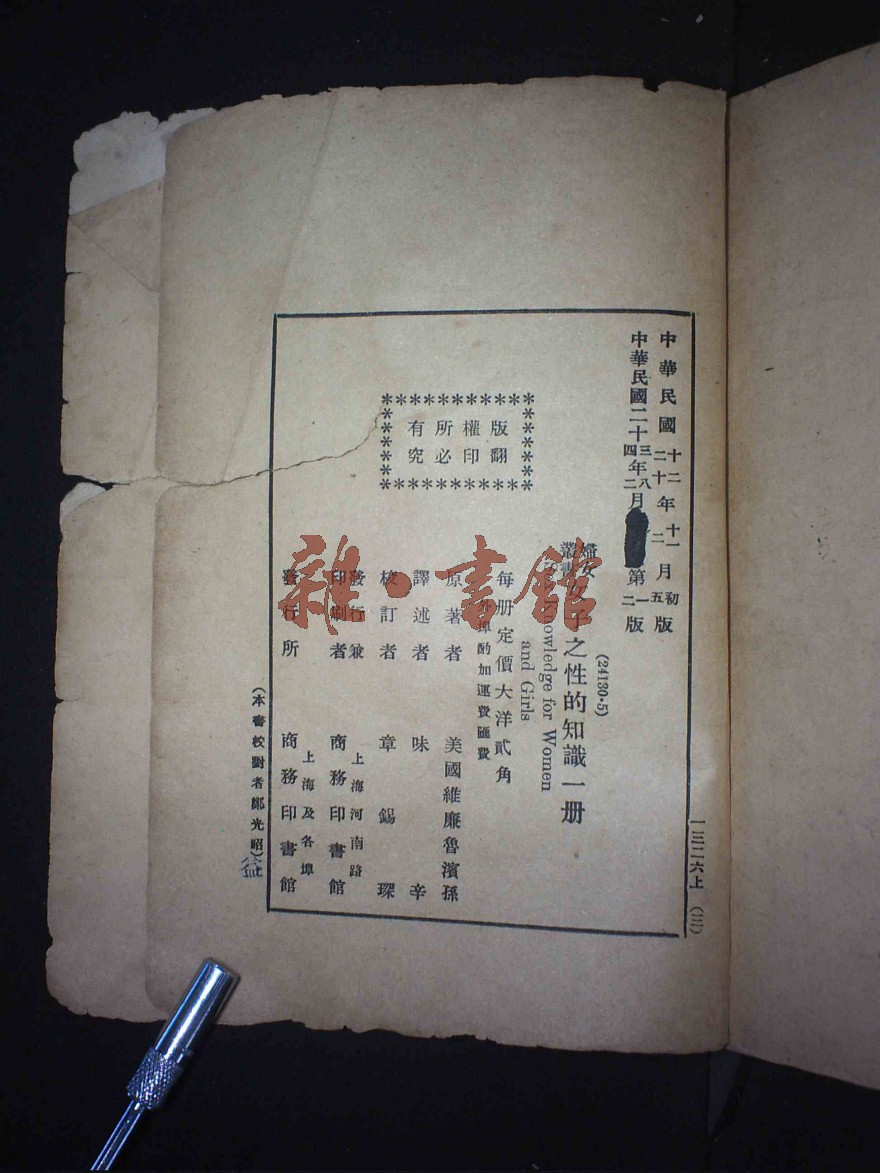 一三二六上 (三)
中華民國十二年十一月初版
二十年二月五版
中華民國二十三年八月第一版
四年二月二版
(24130·5)
婦女
叢書
女子之性的知識一册
Knowledge for Women
and Girls
每册定價大洋貳角
外埠酌加運費匯費
版權所有
翻印必究
原著者 美國維廉魯濱孫
譯述者 味辛
校訂者 章錫琛
發行兼
印刷者
上海河南路
商務印書館
發行所
上海及各埠
商務印書館
(本書校對者鄭光昭)
雜·書館